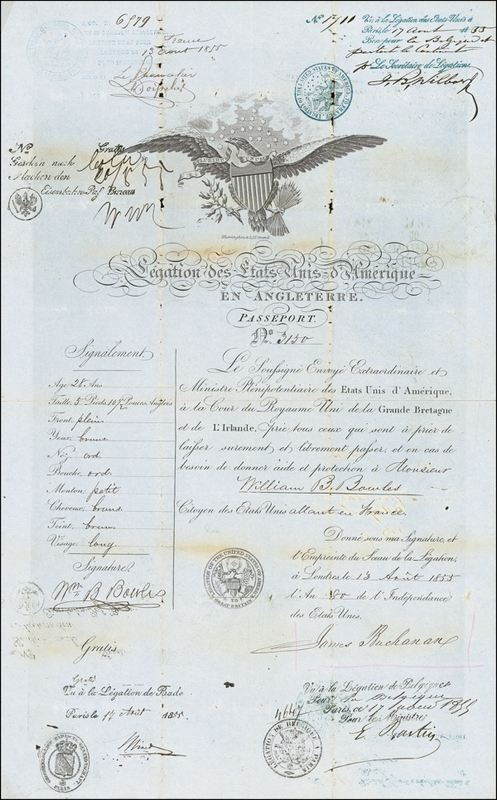 6979
13 Aout 1855
Nº 1711 Vu à la Légation des Etats Unis à
Paris le 17 Aout 1855
Bon pour la Belgique et
Le Secrétaire de Légation,
Nº Gratis
Gesehen nach
Aachen den
Eisenbahn Pass Bureau
Légation des Etats Unis d'Amérique
EN ANGLETERRE.
PASSEPORT.
Nº 3150
Signalement
Age 28 Ans
Taille 5 Pieds 10½ Pouces Anglais
Front plein
Yeux bruns
Nez ord
Bouche ord
Menton petit
Cheveux bruns
Teint brun
Visage long
Signature
Wm B Bowles
Le Soussigné Envoyé Extraordinaire et
Ministre Plénipotentiaire des Etats Unis d'Amérique,
à la Cour du Royaume Uni de la Grande Bretagne
et de L'Irlande, prie tous ceux qui sont à prier de
laisser surement et librement passer, et en cas de
besoin de donner aide et protection à Monsieur
William B. Bowles
Citoyen des Etats Unis allant en France
Donné sous ma Signature, et
l'Empreinte du Sceau de la Légation,
à Londres le 13 Août 1855
l'An 80 de l'Indépendance
des Etats Unis.
James Buchanan
Gratis
Gratis
Vu à la Légation de Bade
Paris le 17 Août 1855
Vu à la Légation de Belgique
Pour la Belgique
Paris, ce 17
Pour le Ministre
4647
LEGATION DE BELGIQUE A PARIS